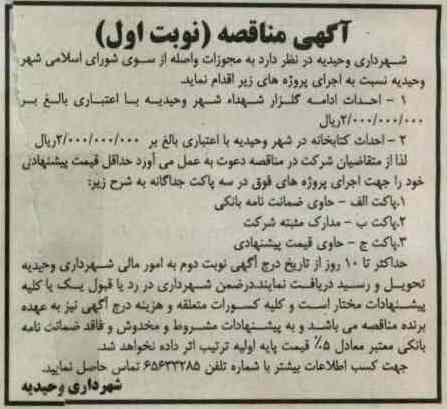 آگهی مناقصه (نوبت اول)
شهرداری وحیدیه در نظر دارد به مجوزات واصله از سوی شورای اسلامی شهر
وحیدیه نسبت به اجرای پروژه های زیر اقدام نماید.
۱ - احداث ادامه گلزار شهداء شهر وحیدیه با اعتباری بالغ بر
۲/۰۰۰/۰۰۰/۰۰۰ریال
۲ - احداث کتابخانه در شهر وحیدیه با اعتباری بالغ بر ۲/۰۰۰/۰۰۰/۰۰۰ریال
لذا از متقاضیان شرکت در مناقصه دعوت به عمل می آورد حداقل قیمت پیشنهادی
خود را جهت اجرای پروژه های فوق در سه پاکت جداگانه به شرح زیر:
۱.پاکت الف - حاوی ضمانت نامه بانکی
۲.پاکت ب - مدارک مثبته شرکت
۳.پاکت ج - حاوی قیمت پیشنهادی
حداکثر تا ۱۰ روز از تاریخ درج آگهی نوبت دوم به امور مالی شهرداری وحیدیه
تحویل و رسید دریافت نمایند.درضمن شهرداری در رد یا قبول یک یا کلیه
پیشنهادات مختار است و کلیه کسورات متعلقه و هزینه درج آگهی نیز به عهده
برنده مناقصه می باشد و به پیشنهادات مشروط و مخدوش و فاقد ضمانت نامه
بانکی معتبر معادل ۵٪ قیمت پایه اولیه ترتیب اثر داده نخواهد شد.
جهت کسب اطلاعات بیشتر با شماره تلفن ۶۵۶۳۳۲۸۵ تماس حاصل نمایید.
شهرداری وحیدیه